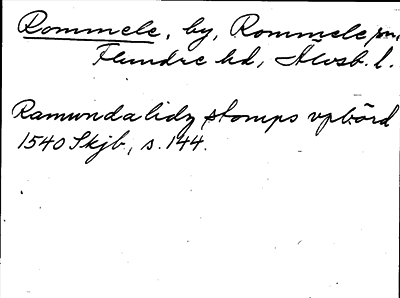 Rommele, by, Rommele sn,
Flundre hd, Älvsb. l.
Ramunda lidz stomps vpbörd
1540 Skjb, s. 144.